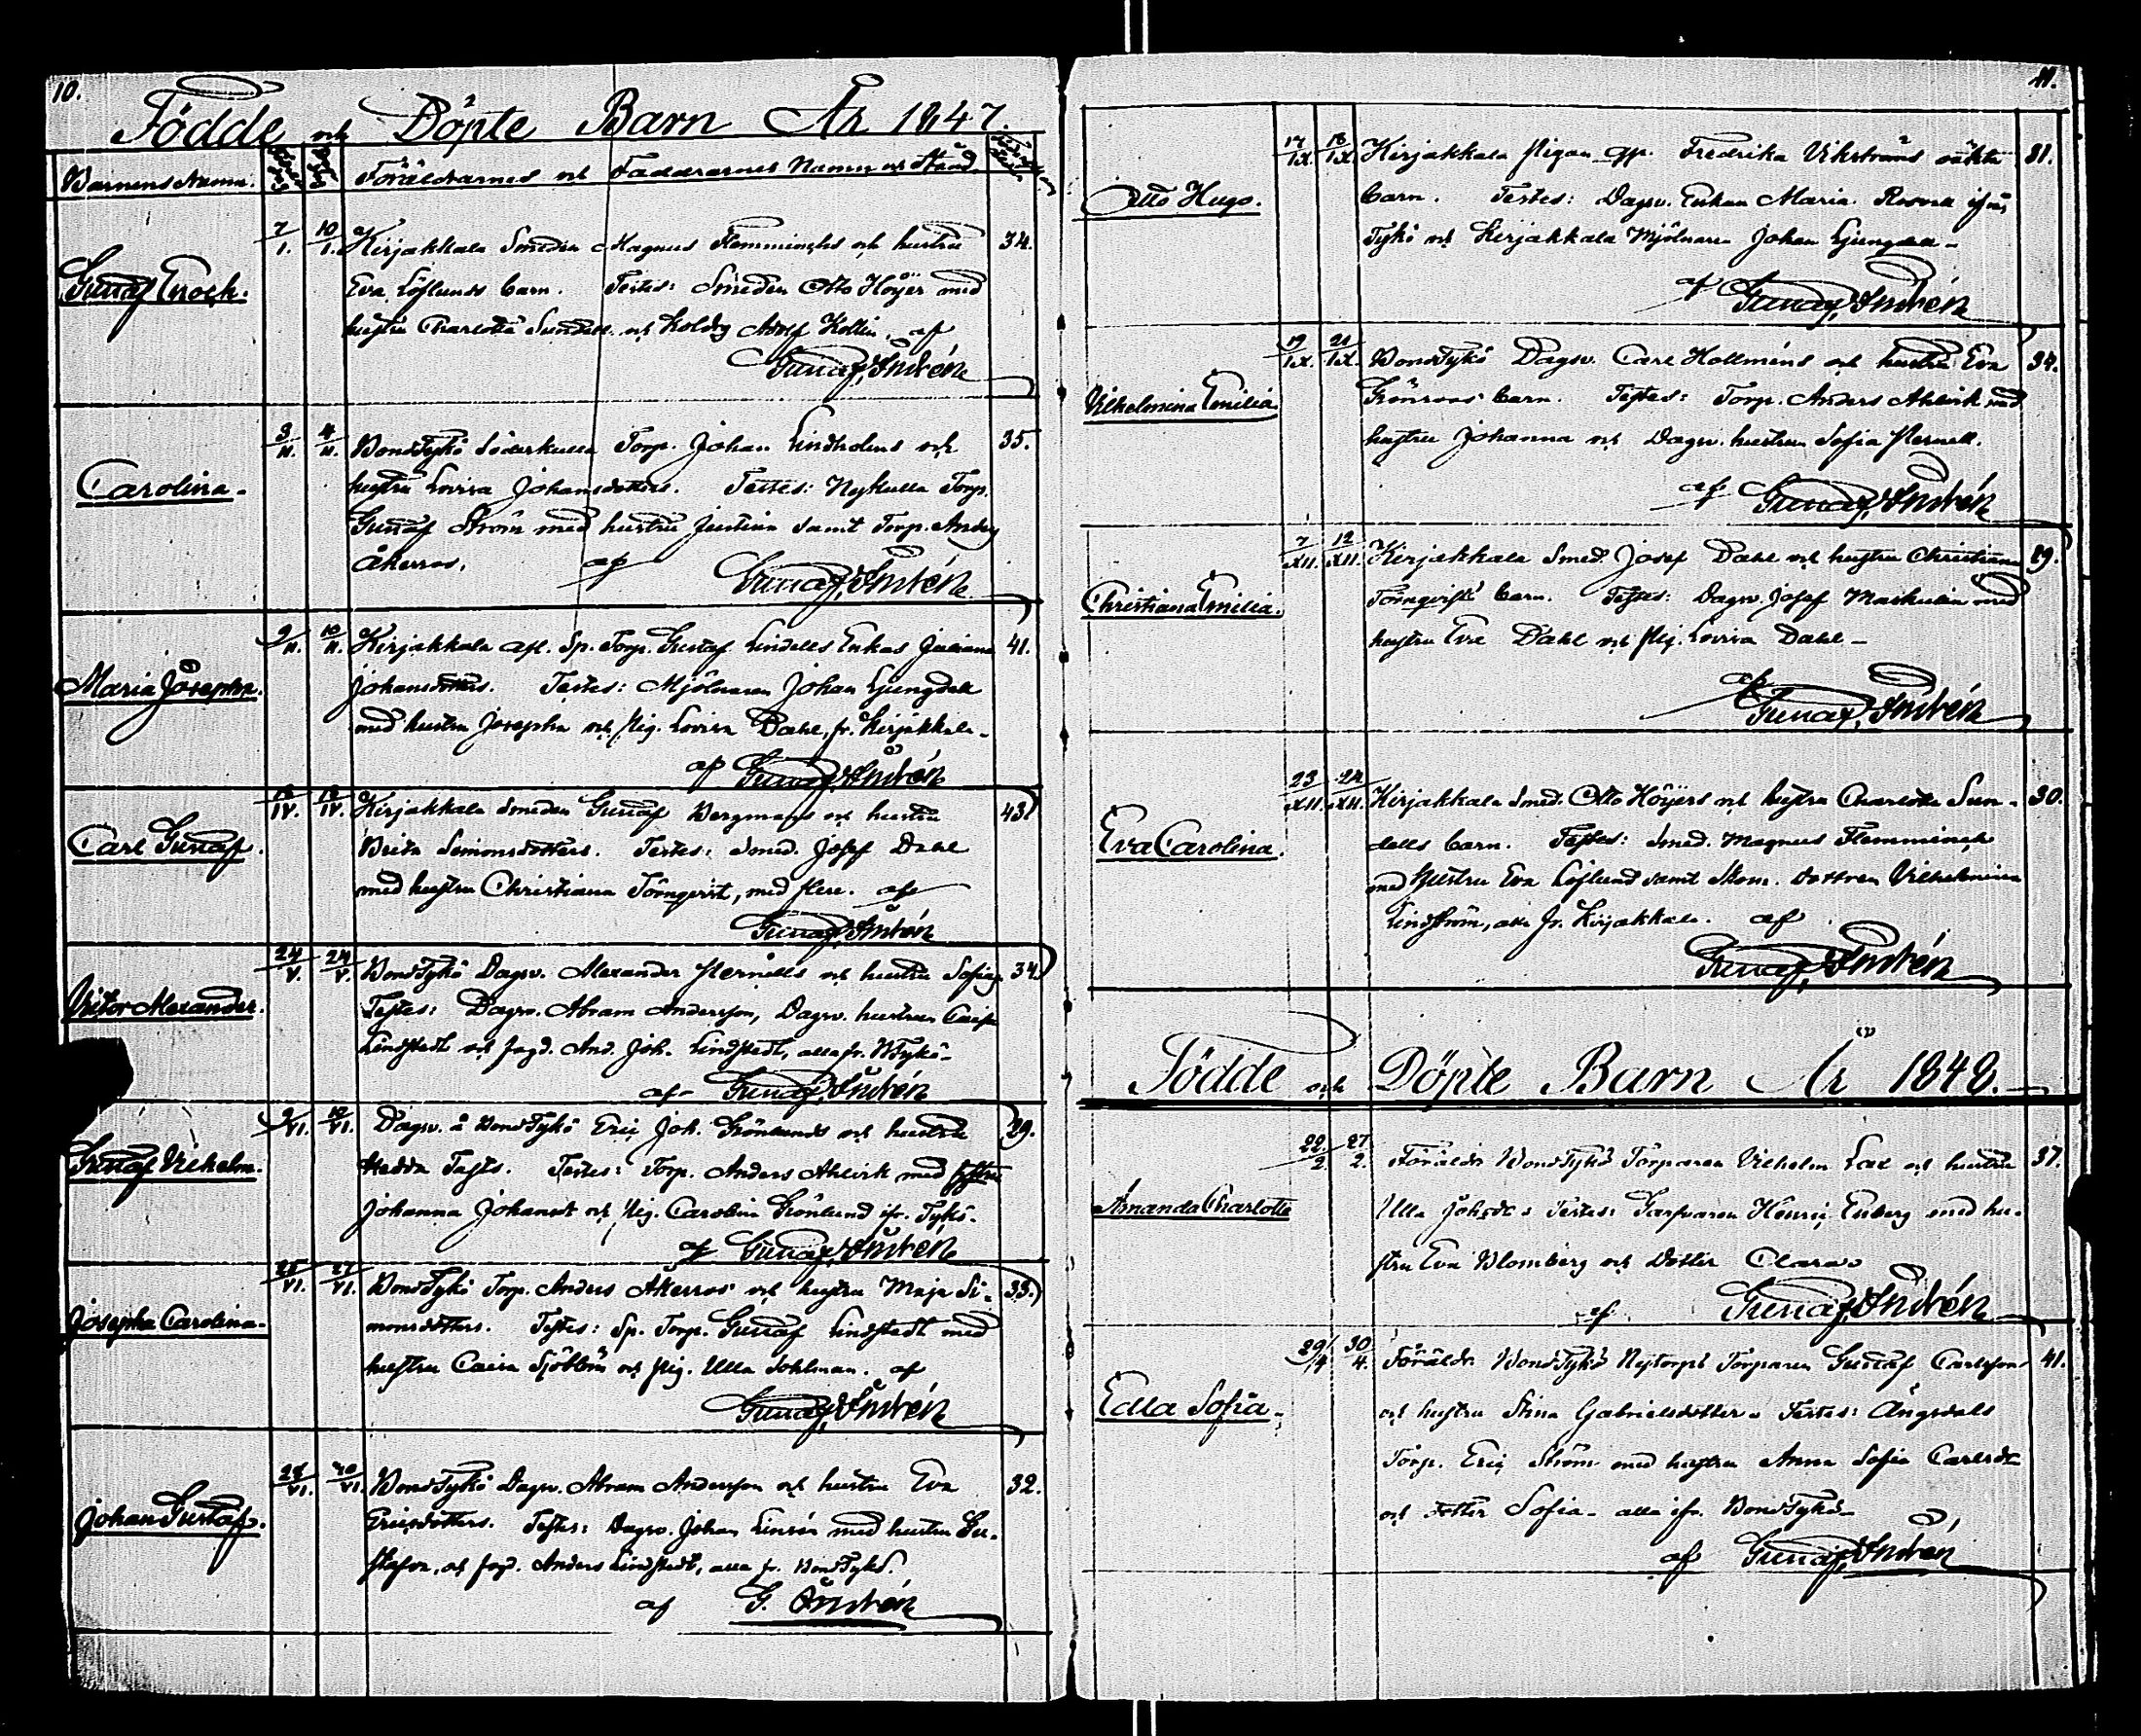 10.
Födde och Döpte Barn År 1847.
Barnens Namn. Föräldrarnes och Faddrarnes Namn och Stånd
Gustaf Enoch. 7/I. 10/I. Kirjakkala Smeden Magnus Flemminchs och hustru 34.
Eva Löflunds barn. Testes: Smeden Otto Höijer med
hustru Charlotta Sundell och Koldrg Adolf Hollin. af
Gustaf Andrén
Carolina. 3/II. 4/II. BondTykö Söderkulla Torp. Johan Lindholms och 35.
hustru Lovisa Johansdotters. Testes: Nykulla Torp.
Gustaf Ström med hustru Justina samt Torp. Anders
Åkerros. af Gustaf Andrén
Maria Josepha. 9/II. 10/II. Kirjakkala afl. Sp. Torp. Gustaf Lindells Enkas Juliana 41.
Johansdotters. Testes: Mjölnaren Johan Ljungdell
med hustru Josepha och Pig. Lovisa Dahl, fr. Kirjakkala.
af Gustaf Andrén
Carl Gustaf. 18/IV. Kirjakkala Smeden Gustaf Bergmans och hustru 43.
Brita Simonsdotters. Testes: Smed. Josef Dahl
med hustru Christiana Törnqvist, med flere. af
Gustaf Andrén
Victor Alexander. 24/V. 24/V. BondTykö Dagsv. Alexander Pernells och hustru Sofias 34.
Testes: Dagsv. Abram Andersson, Dagsv. hustrun Caisa
Lindstedt och Jngd. And. Joh. Lindstedt, alla fr. BTykö.
af Gustaf Andrén
Gustaf Vilhelm. 9/VI. 10/VI. Dagsv. å BondTykö Eric Joh. Grönlunds och hustru 29.
Hedda Tasts. Testes: Torp. Anders Ahlvik med hustru
Johanna Johansdt och Pig. Carolina Grönlund ifr. Tykö.
af Gustaf Andrén
Josepha Carolina. 25/VI. 27/VI. BondTykö Torp. Anders Åkerros och hustru Maja Si- 33.
monsdotters. Testes: Sp. Torp. Gustaf Lindstedt med
hustru Caisa Sjöblom och Pig. Ulla Sohlman. af
Gustaf Andrén
Johan Gustaf. BondTykö Dagsv. Abram Andersson och hustru Eva 32.
Ericsdotters. Testes: Dagsv. Johan Linrén med hustru Gu-
stafva, och Jngd. Anders Lindstedt, alla fr. BondTykö.
af G. Andrén
11.
Otto Hugo. 17/IX. 18/IX. Kirjakkala Pigan Fredrika Vikströms oäkta 31.
barn. Testes: Dagsv. Enkan Maria Rosvall ifrån
Tykö och Kirjakkala Mjölnaren Johan Ljungdell.
af Gustaf Andrén
Vilhelmina Emilia. 19/IX. 21/IX. BondTykö Dagsv. Carl Hollméns och hustru Eva 34.
Grönroos barn. Testes: Torp. Anders Ahlvik med
hustru Johanna och Dagsv. hustrun Sofia Pernell.
af Gustaf Andrén
Christiana Emilia. 7/XII. 12/XII. Kirjakkala Smed. Josef Dahl och hustru Christiana 29.
Törnqvists barn. Testes: Dagsv. Josef Maskulin med
hustru Eva Dahl och Pig. Lovisa Dahl.
af Gustaf Andrén
Eva Carolina. 23/XII. 24/XII. Kirjakkala Smed. Otto Höijers och hustru Charlotta Sun- 30.
dells barn. Testes: Smed. Magnus Flemminch
med hustru Eva Löflund samt Skom. dottren Vilhelmina
Lindström, alla fr. Kirjakkala. af
Gustaf Andrén
Födde och Döpte Barn År 1848.
Amanda Charlotta 22/2 27/2. Föräldr. BondTykö Torparen Vilhelm Lax och hustru 37.
Ulla Johsdt. Testes: Torparen Henric Enberg med hu-
stru Eva Blomberg och Dotter Clara.
af Gustaf Andrén
Edla Sofia. 29/4 30/4. Föräldr. BondTykö Nytorps Torparen Gustaf Carlsson 41.
och hustru Stina Gabrielsdotter. Testes: Ängsdals
Torp. Eric Ström med hustru Anna Sofia Carlsdt
och dotter Sofia. alla ifr. BondTykö.
af Gustaf Andrén